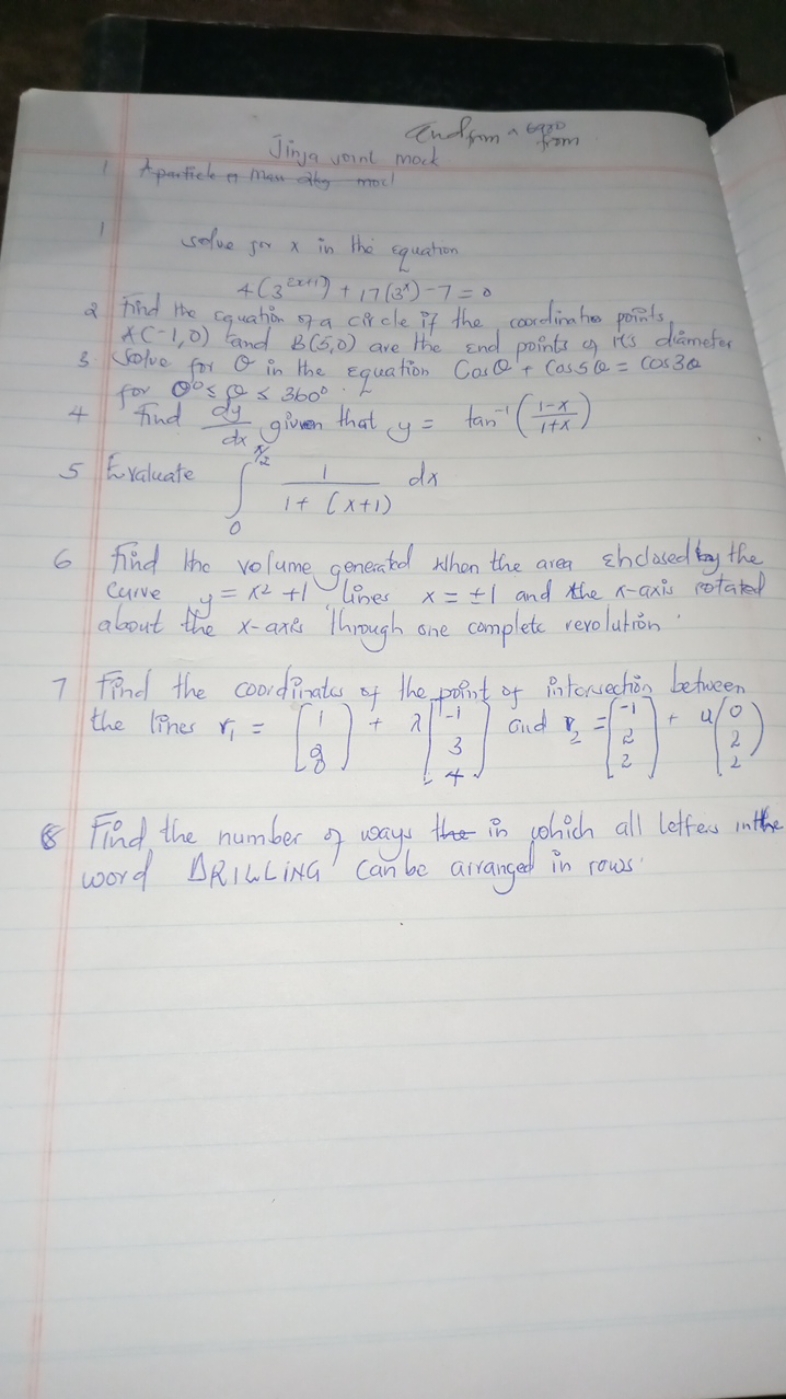 and from a from
Jinja joint mock
1 A particle of Mass 2kg moc
1 solve for x in the equation
4(3^(2x+1)) + 17(3^x) - 7 = 0
2 Find the equation of a circle if the coordinates points
A(-1,0) and B(5,0) are the end points of its diameter
3 Solve for θ in the Equation Cosθ + Cos5θ = Cos3θ
for 0° ≤ θ ≤ 360°.
4 Find dy/dx given that y = tan⁻¹((1-x)/(1+x))
5 Evaluate ∫₀^(π/2) 1/(1+(x+1)) dx
6 Find the volume generated when the area enclosed by the
curve y = x² + 1 lines x = ±1 and the x-axis rotated
about the x-axis through one complete revolution.
7 Find the coordinates of the point of intersection between
the lines r₁ = [1 8] + λ[-1 3 4] and r₂ = [-1 2 2] + u(0 2 2)
8 Find the number of ways the in which all letters in the
word DRILLING can be arranged in rows.